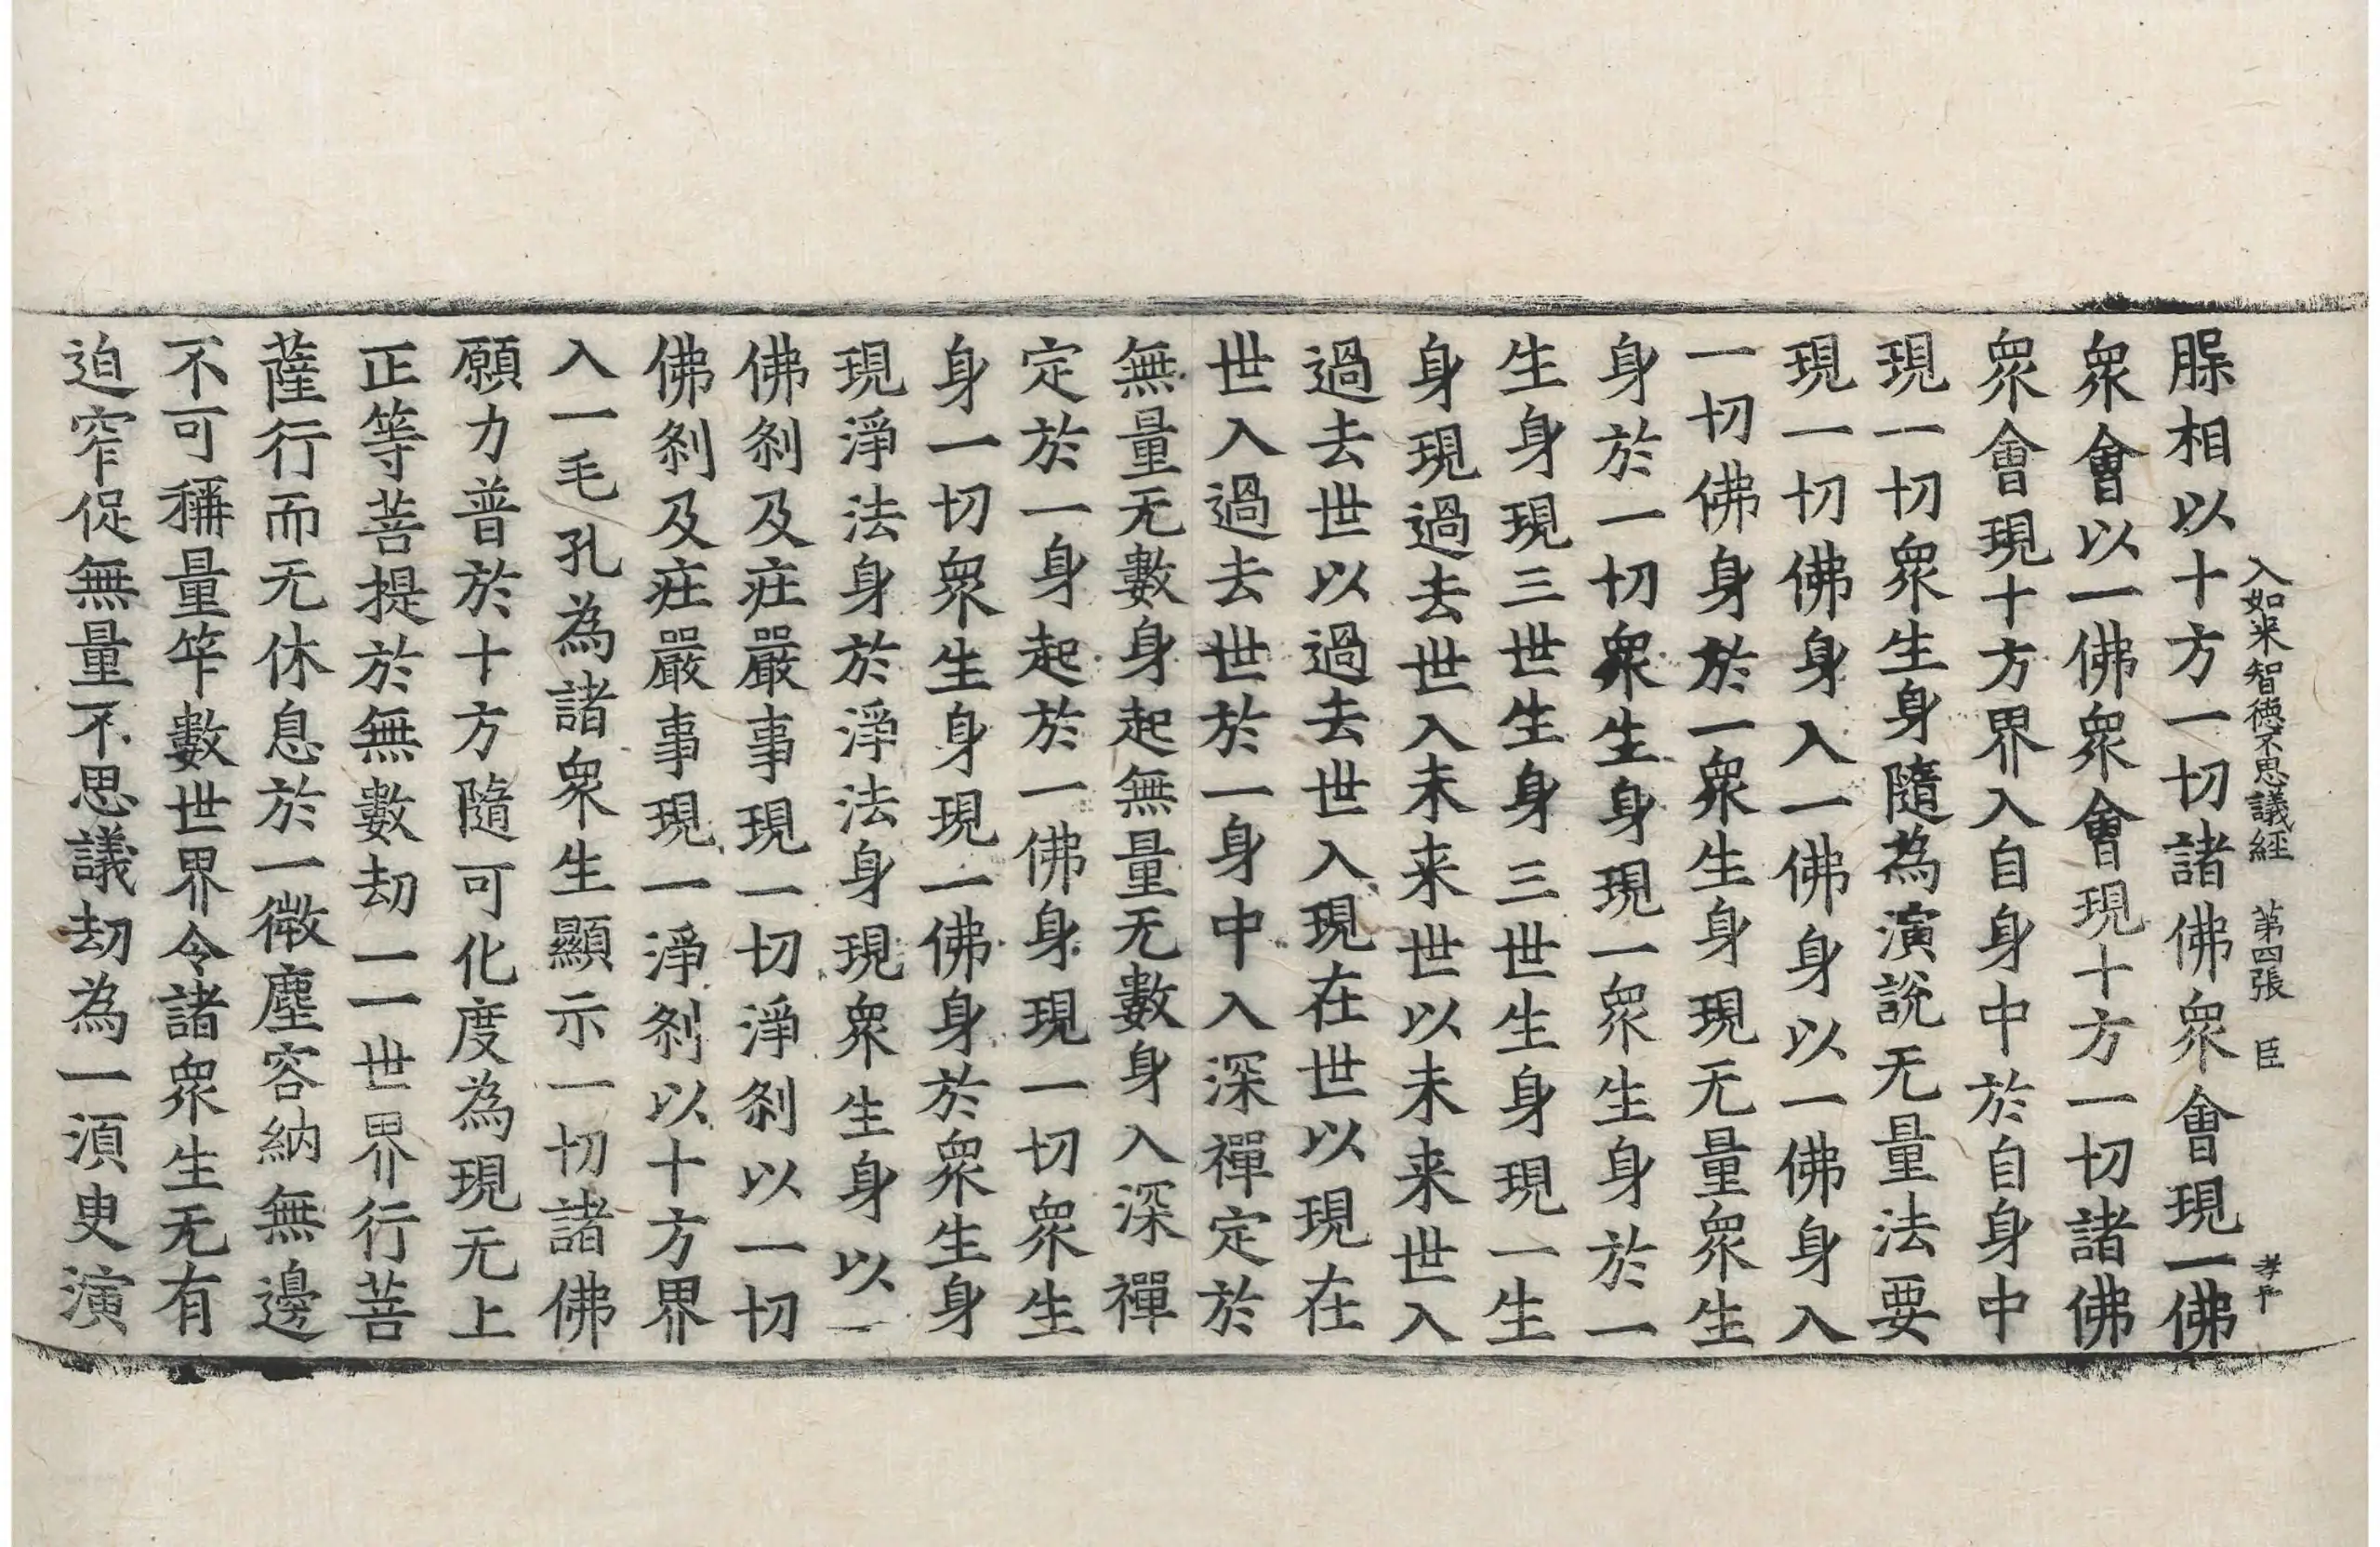 入如来智徳不思議經 第四張 臣 孝
脲相以十方一切諸佛衆會現一佛
衆會以一佛衆會現十方一切諸佛
衆會現十方界入自身中於自身中
現一切衆生身隨為演說无量法要
現一切佛身入一佛身以一佛身入
一切佛身於一衆生身現无量衆生
身於一切衆生身現一衆生身於一
生身現三世生身三世生身現一生
身現過去世入未来世以未来世入
過去世以過去世入現在世以現在
世入過去世於一身中入深禪定於
無量无數身起無量无數身入深禪
定於一身起於一佛身現一切衆生
身一切衆生身現一佛身於衆生身
現淨法身於淨法身現衆生身以一
佛刹及庄嚴事現一切淨刹以一切
佛刹及庄嚴事現一淨刹以十方界
入一毛孔為諸衆生顯示一切諸佛
願力普於十方隨可化度為現无上
正等菩提於無數劫一一世界行菩
薩行而无休息於一微塵容納無邊
不可稱量筭數世界令諸衆生无有
迫窄促無量不思議劫為一湏臾演